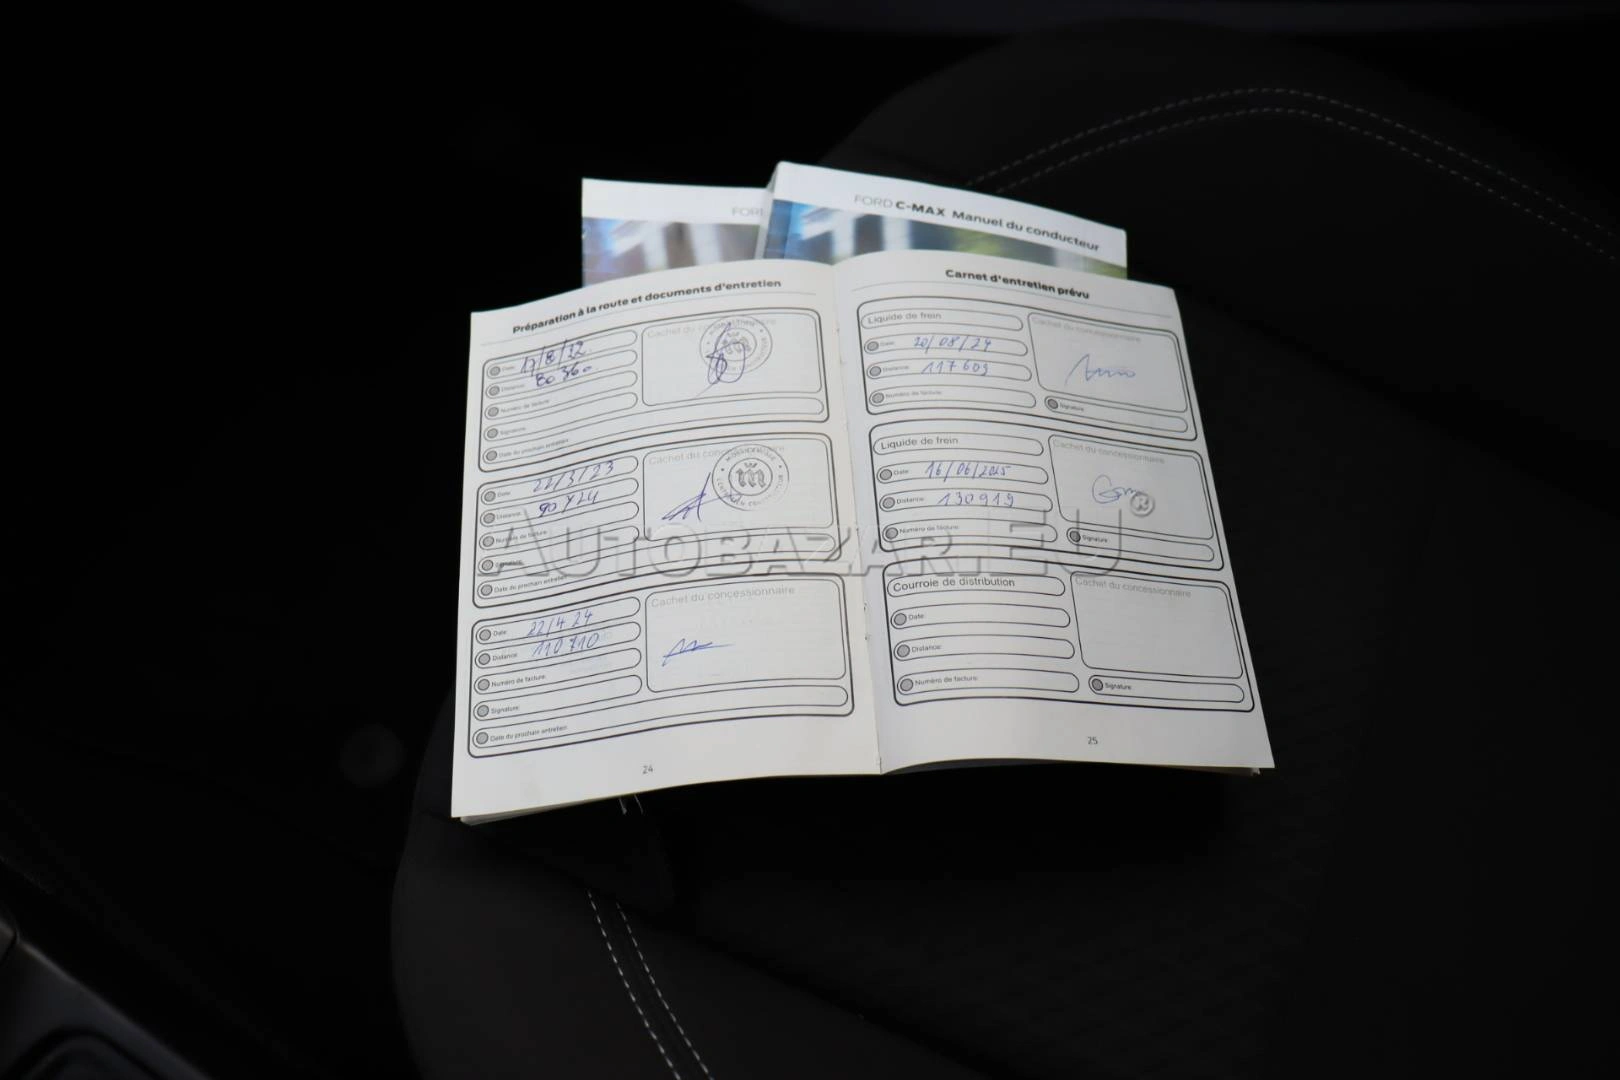 FORD
FORD C-MAX Manuel du conducteur
Préparation à la route et documents d'entretien
Date: 17/8/22
Distance: 80 360
Numéro de facture:
Signature:
Date du prochain entretien:
Cachet du concessionnaire
Date: 22/3/23
Distance:
Numéro de facture:
Signature:
Date du prochain entretien:
Cachet du concessionnaire
Date: 22/4 24
Distance: 110 710
Numéro de facture:
Signature:
Date du prochain entretien:
Cachet du concessionnaire
24
Carnet d'entretien prévu
Liquide de frein
Date: 20/08/24
Distance: 117 609
Numéro de facture:
Cachet du concessionnaire
Signature:
Liquide de frein
Date: 16/06/2025
Distance: 130919
Numéro de facture:
Cachet du concessionnaire
Signature:
Courroie de distribution
Date:
Distance:
Numéro de facture:
Cachet du concessionnaire
Signature:
25
AUTOBAZAR.EU®